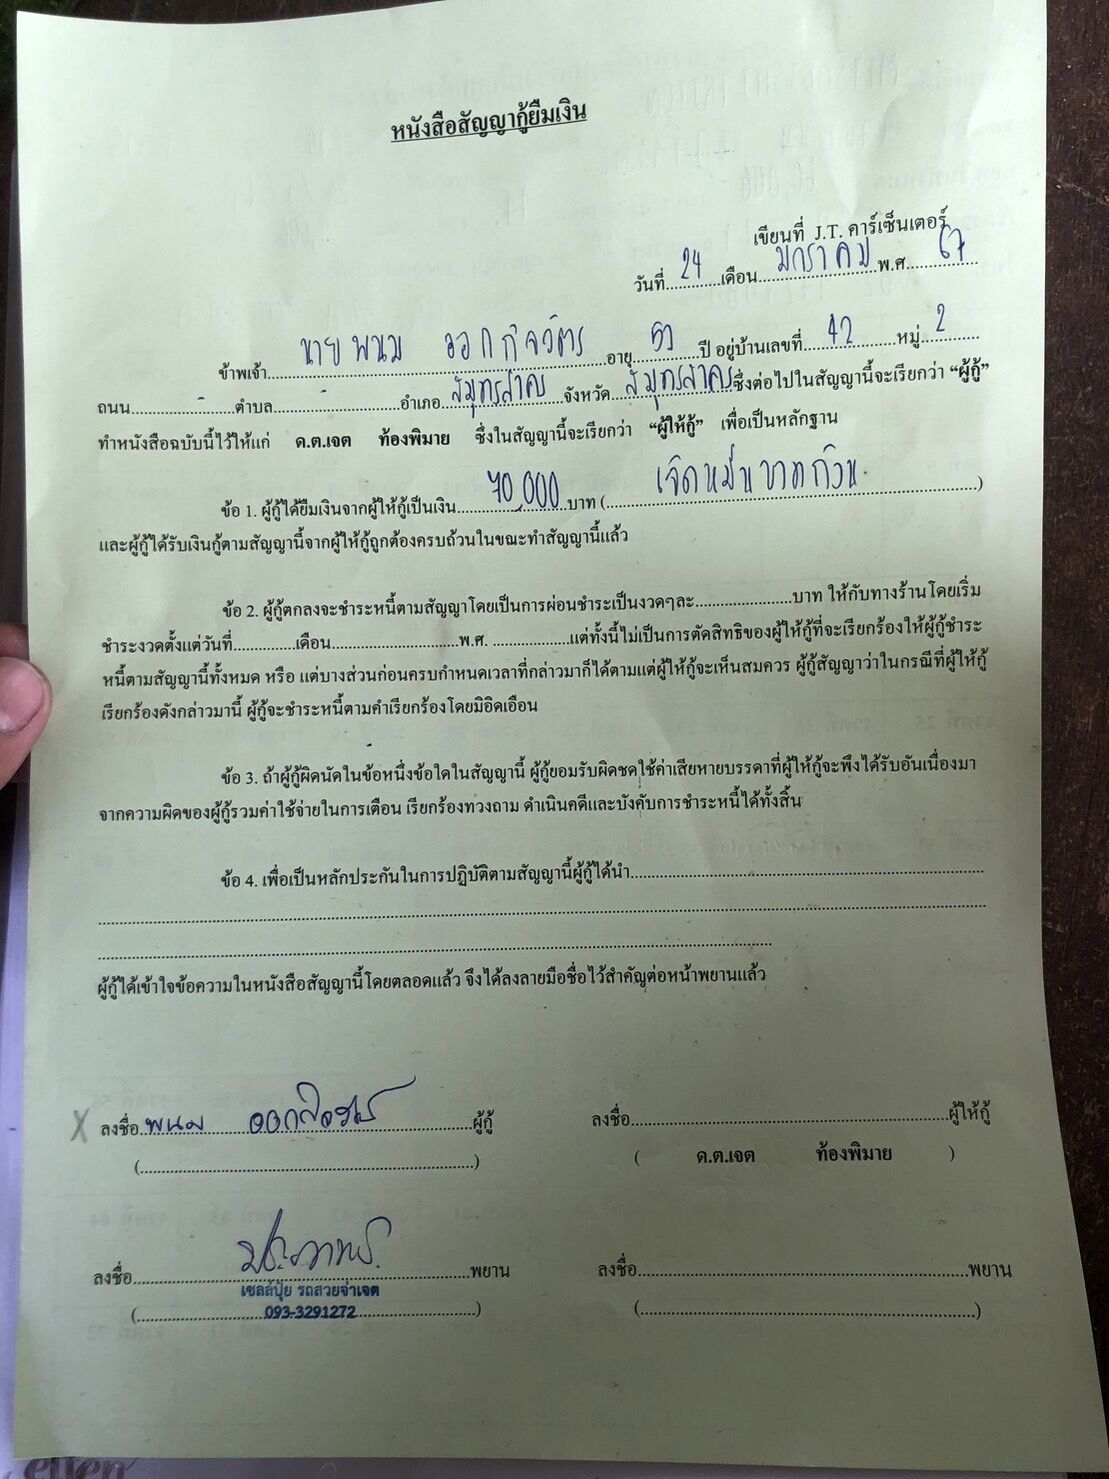 หนังสือสัญญากู้ยืมเงิน
เขียนที่ J.T. คาร์เซ็นเตอร์
วันที่ 24 เดือน มกราคม พ.ศ. 67
ข้าพเจ้า นายพนม ออกกิจวัตร อายุ ปี อยู่บ้านเลขที่ 42 หมู่ 2
ถนน - ตำบล - อำเภอ สมุทรสาคร จังหวัด สมุทรสาคร ซึ่งต่อไปในสัญญานี้จะเรียกว่า “ผู้กู้”
ทำหนังสือฉบับนี้ไว้ให้แก่ ด.ต.เจต ท้องพิมาย ซึ่งในสัญญานี้จะเรียกว่า “ผู้ให้กู้” เพื่อเป็นหลักฐาน
ข้อ 1. ผู้กู้ได้ยืมเงินจากผู้ให้กู้เป็นเงิน 70,000 บาท ( เจ็ดหมื่นบาทถ้วน )
และผู้กู้ได้รับเงินกู้ตามสัญญานี้จากผู้ให้กู้ถูกต้องครบถ้วนในขณะทำสัญญานี้แล้ว
ข้อ 2. ผู้กู้ตกลงจะชำระหนี้ตามสัญญาโดยเป็นการผ่อนชำระเป็นงวดๆละ......................บาท ให้กับทางร้านโดยเริ่ม
ชำระงวดตั้งแต่วันที่..............เดือน.............................พ.ศ. .................แต่ทั้งนี้ไม่เป็นการตัดสิทธิของผู้ให้กู้ที่จะเรียกร้องให้ผู้กู้ชำระ
หนี้ตามสัญญานี้ทั้งหมด หรือ แต่บางส่วนก่อนครบกำหนดเวลาที่กล่าวมาก็ได้ตามแต่ผู้ให้กู้จะเห็นสมควร ผู้กู้สัญญาว่าในกรณีที่ผู้ให้กู้
เรียกร้องดังกล่าวมานี้ ผู้กู้จะชำระหนี้ตามคำเรียกร้องโดยมิอิดเอือน
ข้อ 3. ถ้าผู้กู้ผิดนัดในข้อหนึ่งข้อใดในสัญญานี้ ผู้กู้ยอมรับผิดชดใช้ค่าเสียหายบรรดาที่ผู้ให้กู้จะพึงได้รับอันเนื่องมา
จากความผิดของผู้กู้รวมค่าใช้จ่ายในการเตือน เรียกร้องทวงถาม ดำเนินคดีและบังคับการชำระหนี้ได้ทั้งสิ้น
ข้อ 4. เพื่อเป็นหลักประกันในการปฏิบัติตามสัญญานี้ผู้กู้ได้นำ
ผู้กู้ได้เข้าใจข้อความในหนังสือสัญญานี้โดยตลอดแล้ว จึงได้ลงลายมือชื่อไว้สำคัญต่อหน้าพยานแล้ว
X ลงชื่อ พนม ออกกิจวัตร ผู้กู้ ลงชื่อ ผู้ให้กู้
( ) ( ด.ต.เจต ท้องพิมาย )
ลงชื่อ พยาน ลงชื่อ พยาน
เซลล์ปุ้ย รถสวยจ่าเจต
( 093-3291272 ) ( )